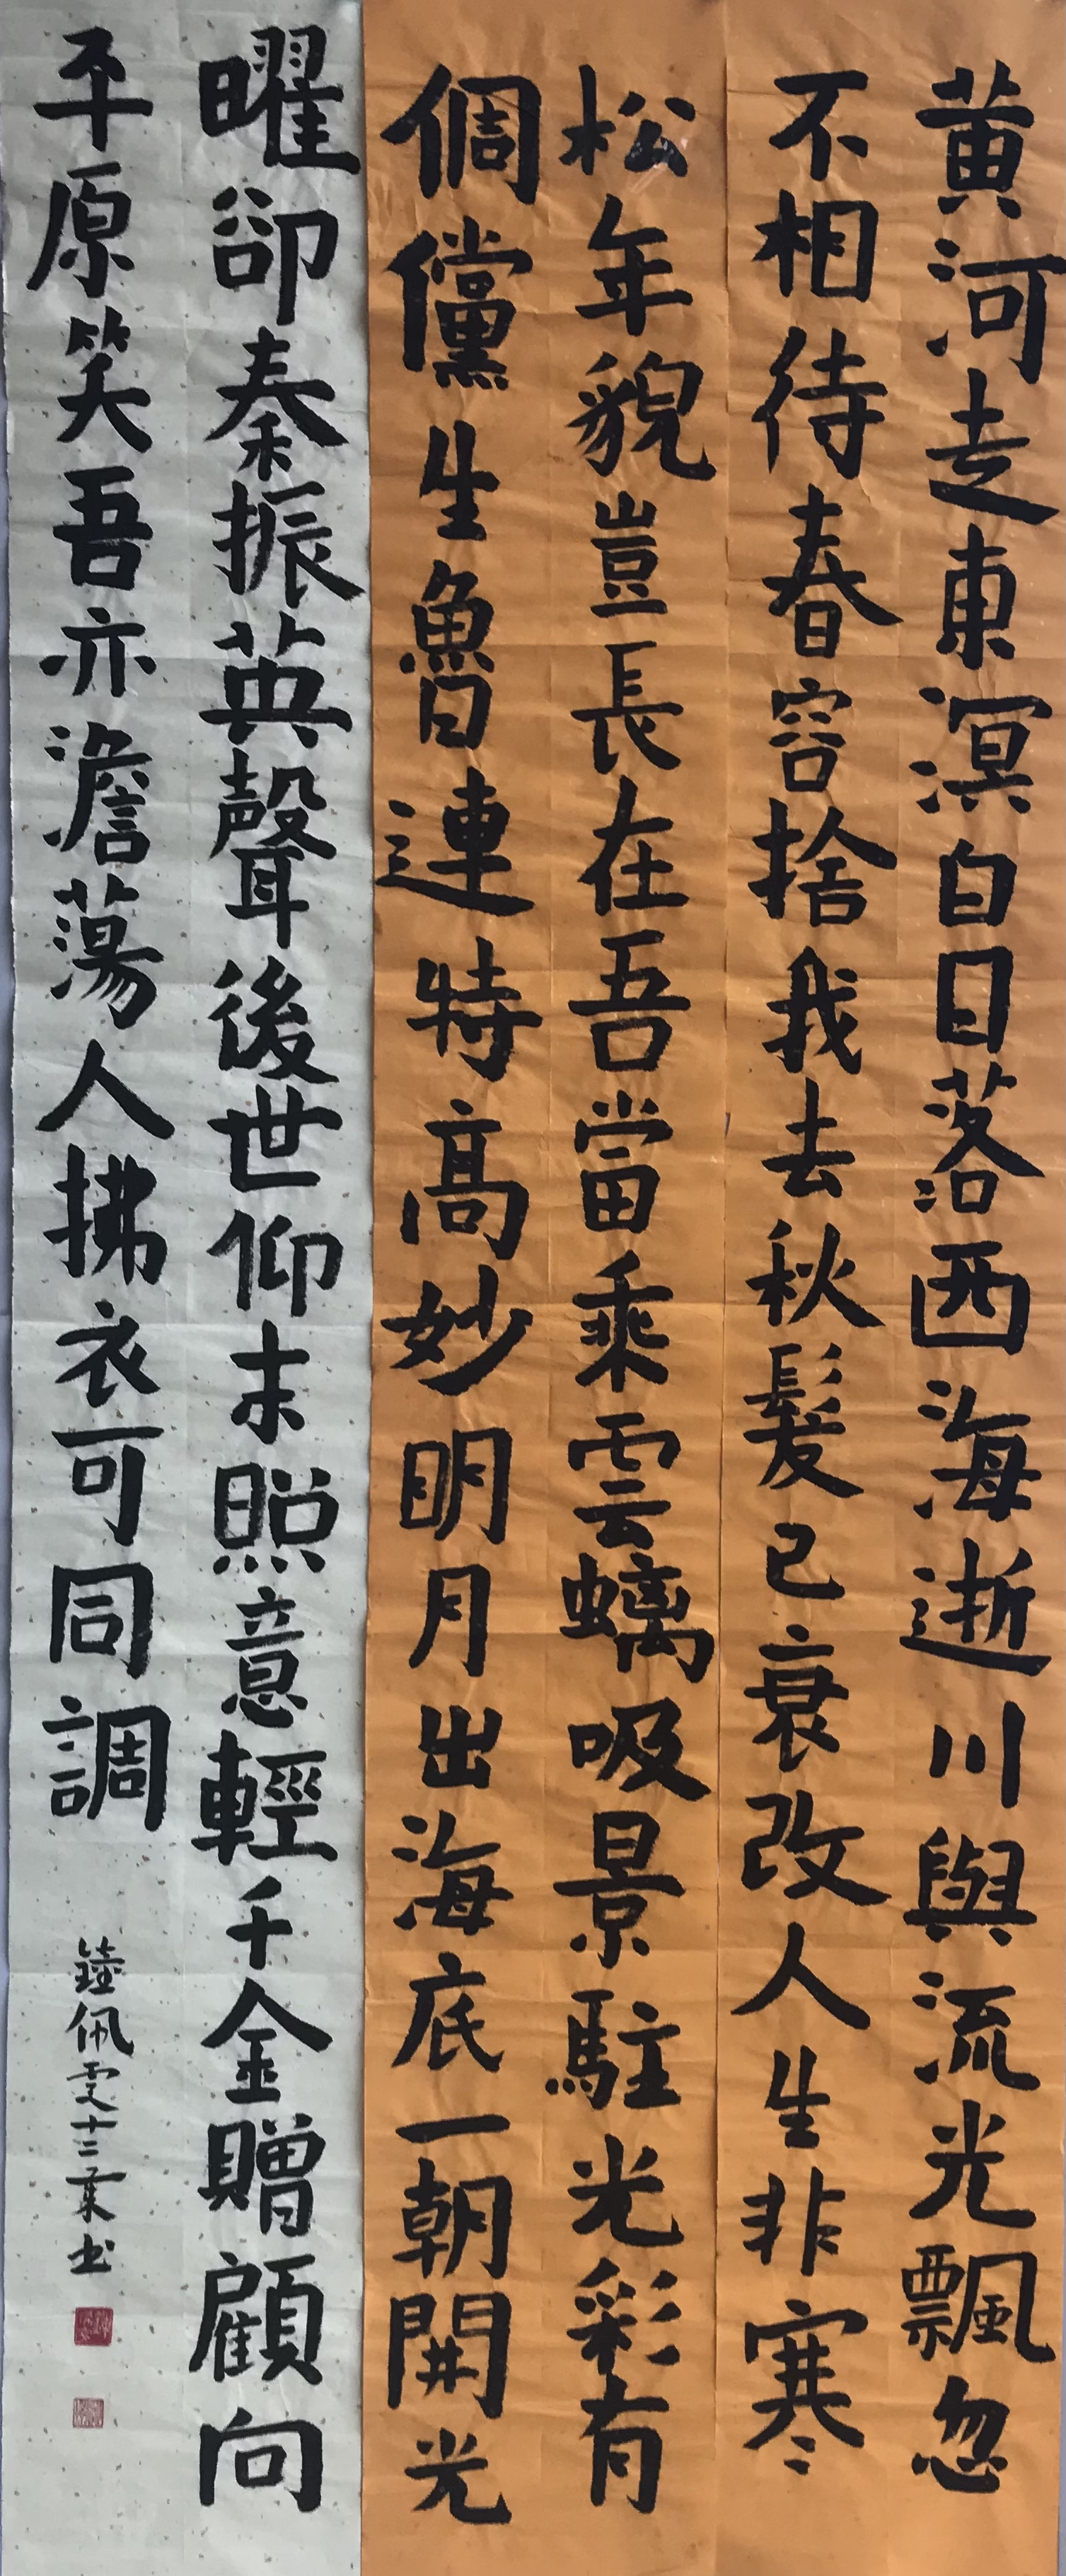 黄河走東溟白日落西海逝川與流光飄忽
不相待春容捨我去秋髮已衰改人生非寒
松年貌豈長在吾當乘雲螭吸景駐光彩有
倜儻生魯連特高妙明月出海底一朝開光
曜卻秦振英聲後世仰末照意輕千金贈顧向
平原笑吾亦澹蕩人拂衣可同調
佩雯十二书